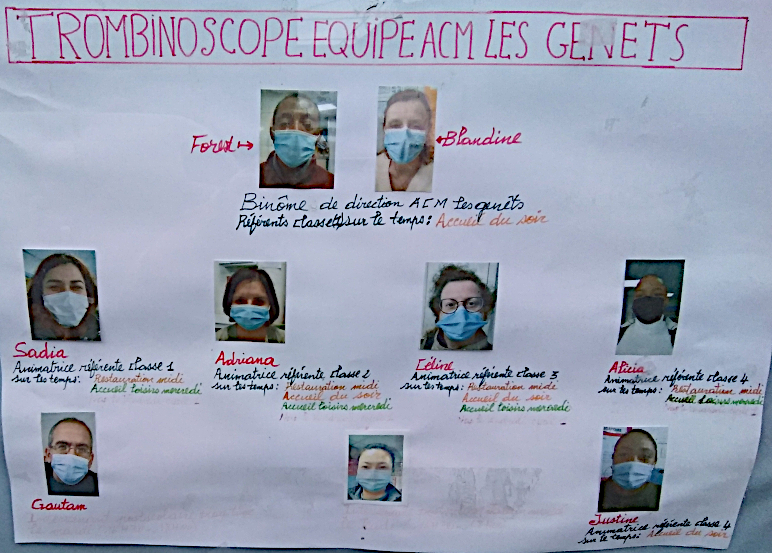 TROMBINOSCOPE EQUIPE ACM LES GENETS
Forest → ← Blandine
Binôme de direction ACM les genêts
Référents classe sur le temps: Accueil du soir
Sadia
Animatrice référente classe 1
sur les temps: Restauration midi
Accueil loisirs mercredi
Adriana
Animatrice référente classe 2
sur les temps: Restauration midi
Accueil du soir
Accueil loisirs mercredi
Céline
Animatrice référente classe 3
sur les temps: Restauration midi
Accueil du soir
Accueil loisirs mercredi
Alicia
Animatrice référente classe 4
sur les temps: Restauration midi
Accueil loisirs mercredi
Gautam
Justine
Animatrice référente classe 4
sur le temps: Accueil du soir